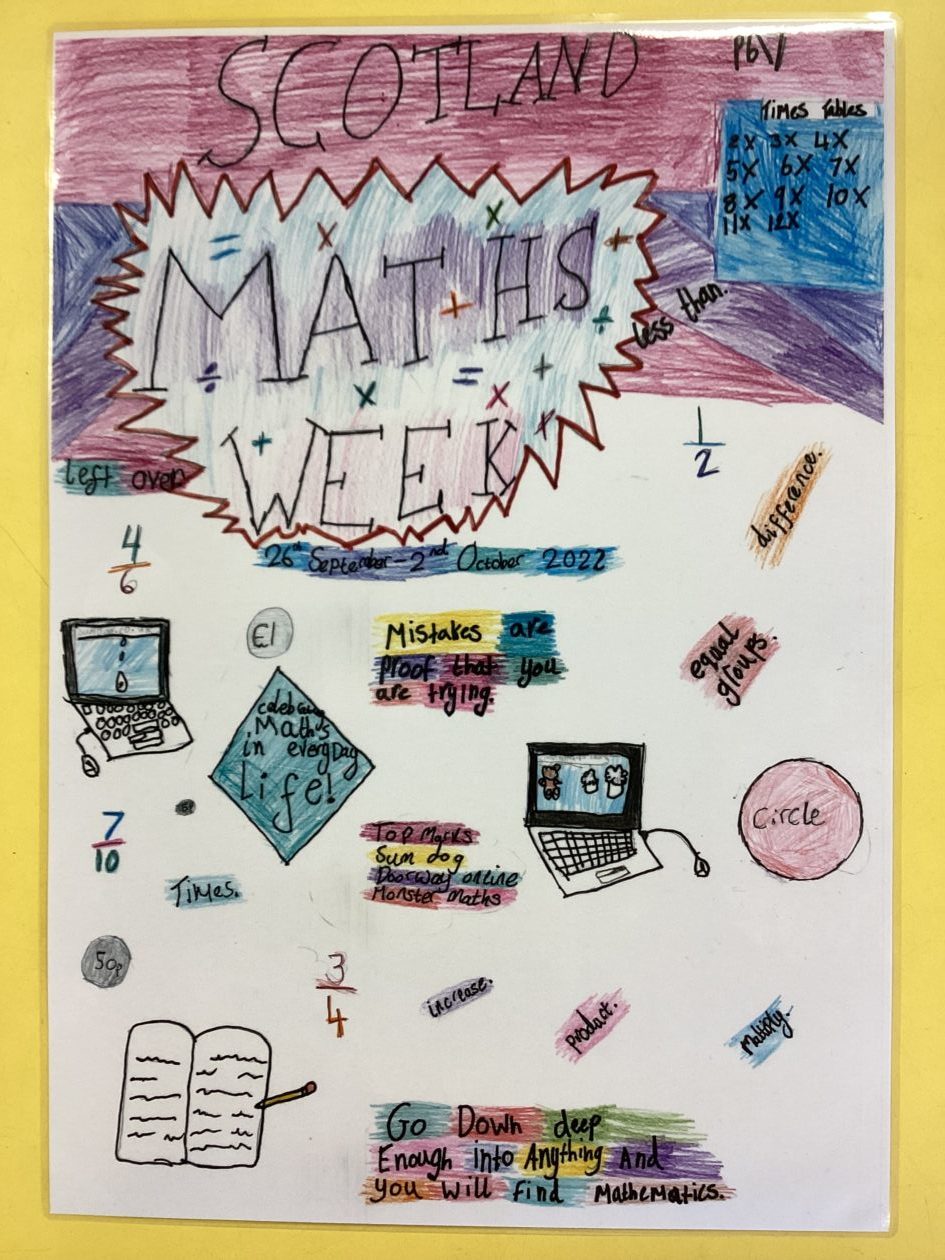 SCOTLAND
P6\/
Times Tables
2x 3x 4x
5x 6x 7x
8x 9x 10x
11x 12x
MATHS
less than.
WEEK
1
2
left over
difference.
4
6
26th September - 2nd October 2022
£1
Mistakes are
proof that you
are trying.
equal
groups.
Maths
in everyDay
Life!
Circle
7
10
Top Marks
Sum dog
Doorway online
Monster Maths
Times.
50p
3
4
increase.
product.
Multiply.
Go Down deep
Enough into Anything And
you will find Mathematics.